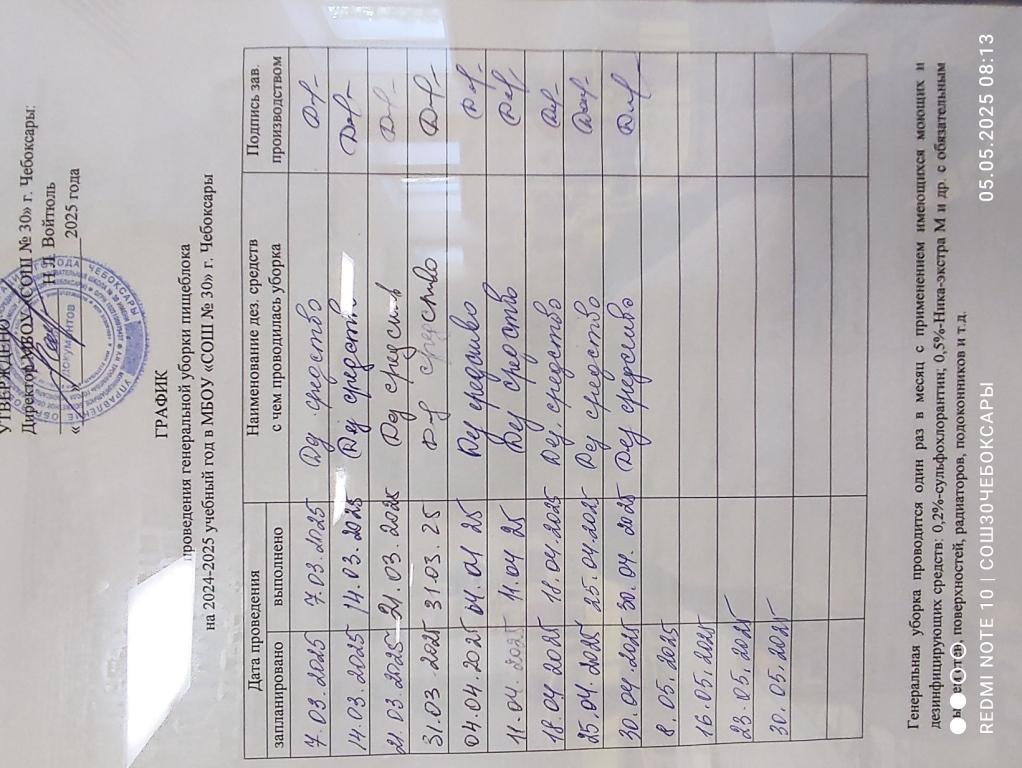 УТВЕРЖДЕНО
Директор МБОУ «СОШ № 30» г. Чебоксары:
Н.Л Войтюль
« » 2025 года
ГРАФИК
проведения генеральной уборки пищеблока
на 2024-2025 учебный год в МБОУ «СОШ № 30» г. Чебоксары
Дата проведения Наименование дез. средств с чем проводилась уборка Подпись зав. производством
запланировано выполнено
7.03.2025 7.03.2025 Дез средство
14.03.2025 14.03.2025 Дез средство
21.03.2025 21.03.2025 Дез средство
31.03 2025 31.03.25 Дез средство
04.04.2025 04.04 25 Дез средство
11.04.2025 11.04 25 Дез средство
18.04 2025 18.04.2025 Дез. средство
25.04.2025 25.04.2025 Дез средство
30.04.2025 30.04.2025 Дез средство
8.05.2025
16.05.2025
23.05.2025
30.05.2025
Генеральная уборка проводится один раз в месяц с применением имеющихся моющих и
дезинфицирующих средств: 0,2%-сульфохлорантин; 0,5%-Ника-экстра М и др. с обязательным
стен, поверхностей, радиаторов, подоконников и т.д.
REDMI NOTE 10 | СОШ30ЧЕБОКСАРЫ
05.05.2025 08:13